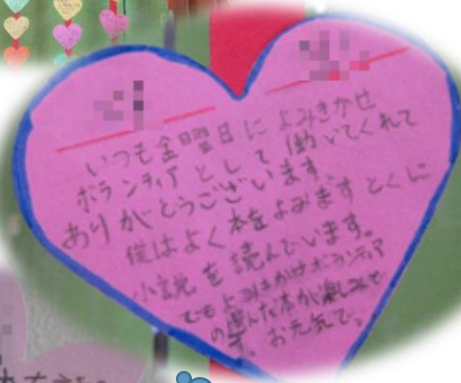 いつも金曜日によみきかせ
ボランティアとして働いてくれて
ありがとうございます。
僕はよく本をよみますとくに
小説を読んでいます。
でもよみきかせボランティア
の選んだ本が楽しみで
す。お元気で。